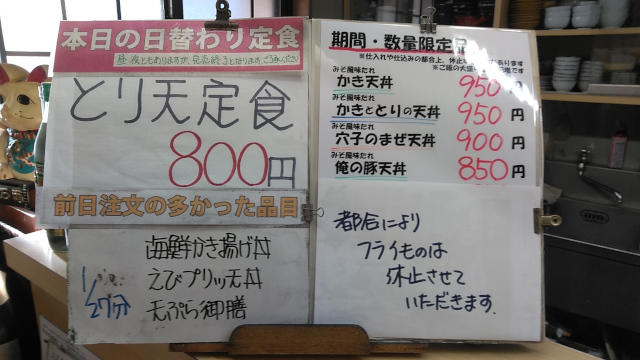 本日の日替わり定食
昼・夜ともありますが、完売続きとなります。ご了承ください
とり天定食
800円
前日注文の多かった品目
1/27分
海鮮かき揚げ丼
えびプリッ天丼
天ぷら御膳
期間・数量限定
※仕入れや仕込みの都合上、休止
みそ風味だれ
かき天丼 950円
みそ風味だれ
かきととりの天丼 950円
みそ風味だれ
穴子のまぜ天丼 900円
みそ風味だれ
俺の豚天丼 850円
都合により
フライものは
休止させて
いただきます。